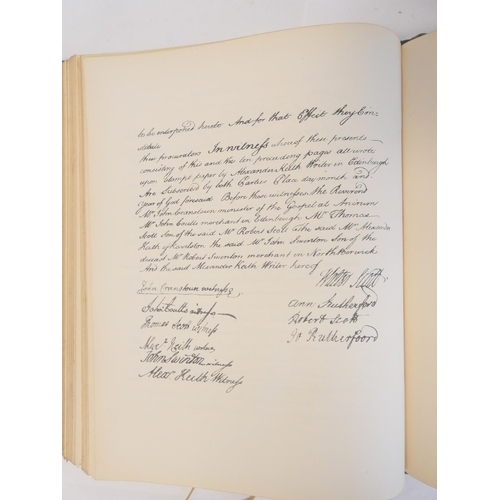 to be interponed hereto And for that Effect they Con=
stitute
their procurators In witness whereof these presents
consisting of this and the ten preceeding pages all wrote
upon Stampt paper by Alexander Keith Writer in Edinburgh
Are Subscrived by both Parties Place day month and
year of God foresaid Before these witnesses The Reverend
Mr. John Cranstown minister of the Gospel at Ancrum
Mr. John Coutts merchant in Edinburgh Mr. Thomas
Scott Son of the said Mr Robert Scott the said Mr Alexander
Keith of Ravelston the said Mr John Swinton Son of the
deceast Mr Robert Swinton merchant in North Berwick
And the said Alexander Keith Writer hereof
Walter Scott
John Cranstown witness
Ann Rutherford
John Coutts witness
Robert Scott
Thomas Scott witness
Jo Rutherfoord
Alexr. Keith witness
John Swinton witness
Alexr Keith Witness